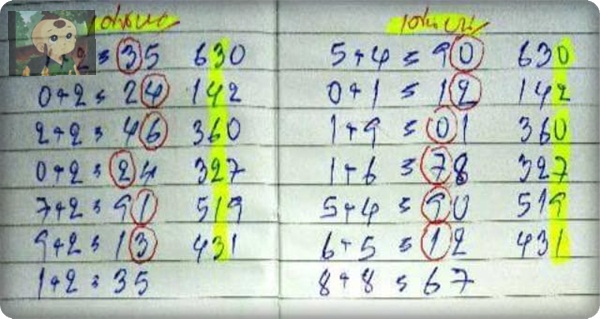 เด่นบน
2 = 35 630
0+2 = 24 142
2+2 = 46 360
0+2 = 24 327
7+2 = 91 519
9+2 = 13 431
1+2 = 35
เด่นบน
5+4 = 90 630
0+1 = 12 142
1+9 = 01 360
1+6 = 78 327
5+4 = 90 519
6+5 = 12 431
8+8 = 67